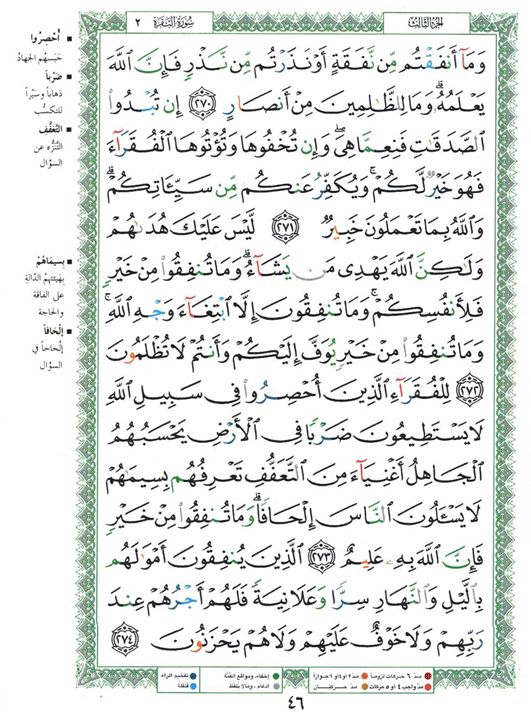 الجزء الثالث
سورة البقرة ٢
وَمَآ أَنفَقْتُم مِّن نَّفَقَةٍ أَوْ نَذَرْتُم مِّن نَّذْرٍ فَإِنَّ ٱللَّهَ
يَعْلَمُهُۥ وَمَا لِلظَّـٰلِمِينَ مِنْ أَنصَارٍ ٢٧٠ إِن تُبْدُوا۟
ٱلصَّدَقَـٰتِ فَنِعِمَّا هِىَ وَإِن تُخْفُوهَا وَتُؤْتُوهَا ٱلْفُقَرَآءَ
فَهُوَ خَيْرٌ لَّكُمْ وَيُكَفِّرُ عَنكُم مِّن سَيِّـَٔاتِكُمْ
وَٱللَّهُ بِمَا تَعْمَلُونَ خَبِيرٌ ٢٧١ لَّيْسَ عَلَيْكَ هُدَىٰهُمْ
وَلَـٰكِنَّ ٱللَّهَ يَهْدِى مَن يَشَآءُ وَمَا تُنفِقُوا۟ مِنْ خَيْرٍ
فَلِأَنفُسِكُمْ وَمَا تُنفِقُونَ إِلَّا ٱبْتِغَآءَ وَجْهِ ٱللَّهِ
وَمَا تُنفِقُوا۟ مِنْ خَيْرٍ يُوَفَّ إِلَيْكُمْ وَأَنتُمْ لَا تُظْلَمُونَ
٢٧٢ لِلْفُقَرَآءِ ٱلَّذِينَ أُحْصِرُوا۟ فِى سَبِيلِ ٱللَّهِ
لَا يَسْتَطِيعُونَ ضَرْبًا فِى ٱلْأَرْضِ يَحْسَبُهُمُ
ٱلْجَاهِلُ أَغْنِيَآءَ مِنَ ٱلتَّعَفُّفِ تَعْرِفُهُم بِسِيمَـٰهُمْ
لَا يَسْـَٔلُونَ ٱلنَّاسَ إِلْحَافًا وَمَا تُنفِقُوا۟ مِنْ خَيْرٍ
فَإِنَّ ٱللَّهَ بِهِۦ عَلِيمٌ ٢٧٣ ٱلَّذِينَ يُنفِقُونَ أَمْوَٰلَهُم
بِٱلَّيْلِ وَٱلنَّهَارِ سِرًّا وَعَلَانِيَةً فَلَهُمْ أَجْرُهُمْ عِندَ
رَبِّهِمْ وَلَا خَوْفٌ عَلَيْهِمْ وَلَا هُمْ يَحْزَنُونَ ٢٧٤
أُحْصِرُوا
حَبَسَهُم الجهادُ
ضَرْباً
ذهاباً وسَيْراً
للتكسُّب
التَّعَفُّفِ
التَّنزُّه عن
السؤال
بِسِيمَاهُمْ
بهَيئتهمُ الدّالةِ
على الفاقة
والحاجة
إِلْحَافاً
إلحاحاً في
السؤال
مدّ ٦ حركات لزوماً
مدّ ٢ أو ٤ أو ٦ جوازاً
إخفاء، ومواقع الغنّة
تفخيم الراء
مدّ واجب ٤ أو ٥ حركات
مدّ حركتان
ادغام، ومالا يلفظ
قلقلة
٤٦